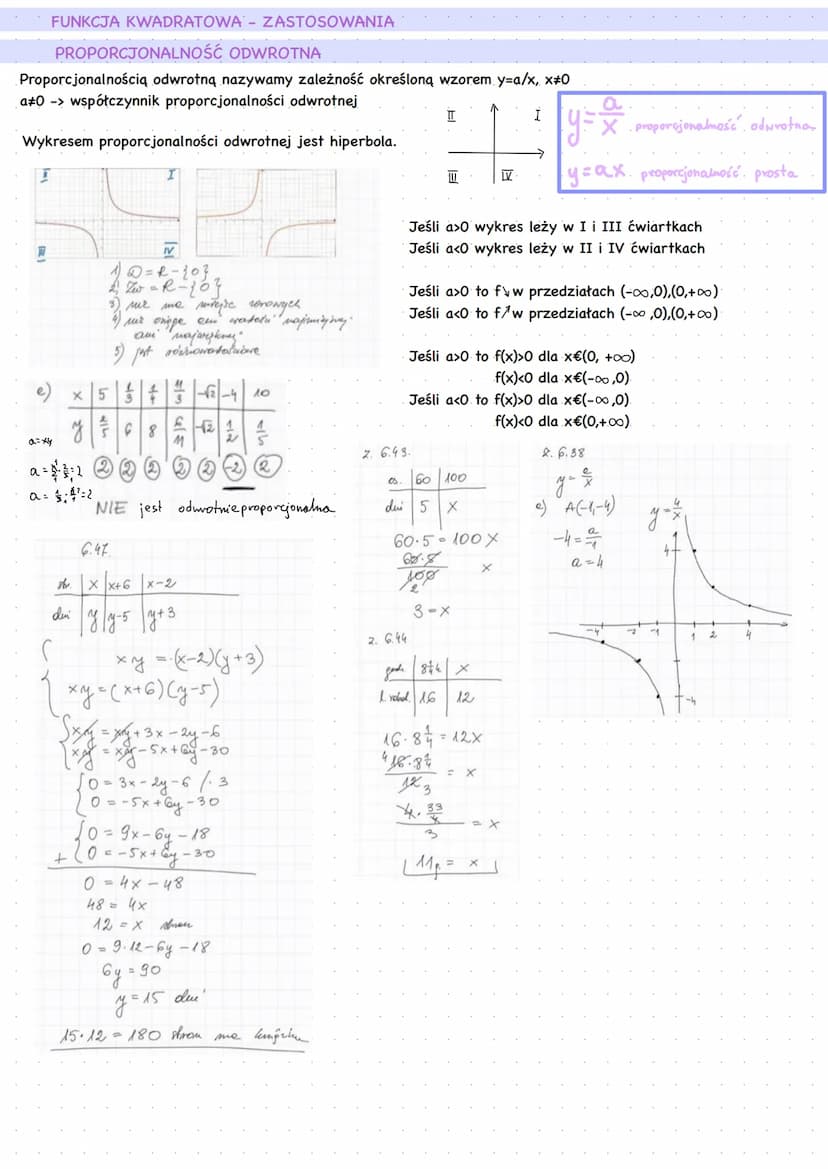 FUNKCJA KWADRATOWA - ZASTOSOWANIA
PROPORCJONALNOŚĆ ODWROTNA
Proporcjonalnością odwrotną nazywamy zależność określoną wzorem y=a/x, x≠0
a≠0 -> współczynnik proporcjonalności odwrotnej
Wykresem proporcjonalności odwrotnej jest hiperbola.
II I
III IV
y=a/x proporcjonalność odwrotna
y=ax proporcjonalność prosta
II I
III IV
1) D=R-{0}
2) Zw=R-{0}
3) nie ma miejsc zerowych
4) nie osiąga ani wartości najmniejszej
ani największej
5) jest różnowartościowa
Jeśli a>0 wykres leży w I i III ćwiartkach
Jeśli a<0 wykres leży w II i IV ćwiartkach
Jeśli a>0 to f↘w przedziałach (-∞,0),(0,+∞)
Jeśli a<0 to f↗w przedziałach (-∞,0),(0,+∞)
Jeśli a>0 to f(x)>0 dla x€(0, +∞)
f(x)<0 dla x€(-∞,0)
Jeśli a<0 to f(x)>0 dla x€(-∞,0)
f(x)<0 dla x€(0,+∞)
e) x 5 1/3 1/4 11/3 -√2 -4 10
y 2/5 6 8 6/11 -√2 1/2 1/5
a=xy
2 2 2 2 2 -2 2
NIE jest odwrotnie proporcjonalna
6.47.
str. x x+6 x-2
dni y y-5 y+3
xy=(x-2)(y+3)
xy=(x+6)(y-5)
xy=xy+3x-2y-6
xy=xy-5x+6y-30
0=3x-2y-6 /·3
0=-5x+6y-30
0=9x-6y-18
+ 0=-5x+6y-30
0=4x-48
48=4x
12=x stron
0=9·12-6y-18
6y=90
y=15 dni
15·12=180 stron ma książka
z. 6.43.
os. 60 100
dni 5 x
60·5=100x
60·5/100 x
2
3=x
z. 6.44
godz. 8 1/4 x
l. robot. 16 12
16·8 1/4=12x
4 16·8 1/4 / 12 3 = x
4·33/4 / 3 = x
11h = x
z. 6.38
y=a/x
c) A(-1,-4)
-4=a/-1
a=4
y=4/x
4
-4 -2 -1 1 2 4
-4